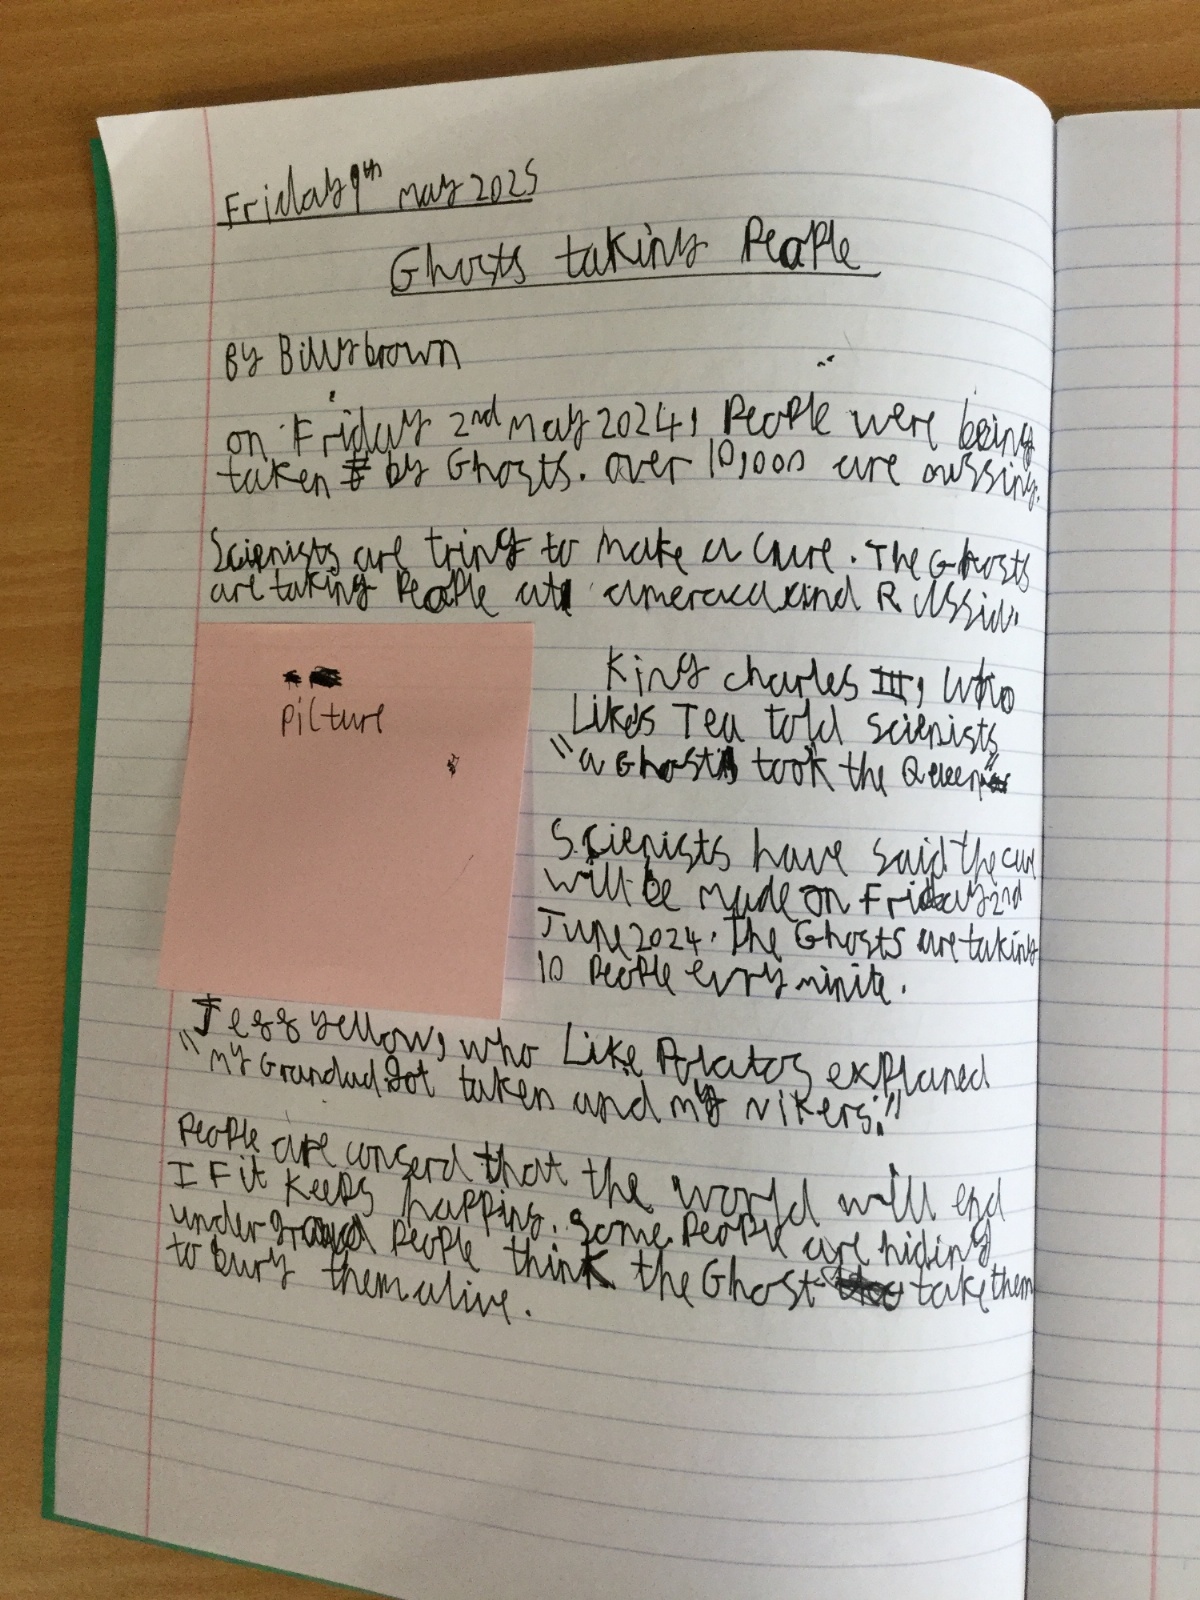 Friday 9th may 2025
Ghosts taking People
By Billy brown
on Friday 2nd may 2024, People were being
taken by Ghosts. over 10,000 are missing.
Scienists are tring to make a cure. The Ghosts
are taking People at ameraca and Russia.
King charles III, who
Likes Tea told scienists
"a Ghost took the Queen"
Scienists have said the cure
will be made on Friday 2nd
June 2024. The Ghosts are taking
10 People evry minite.
Picture
Jess yellow, who Like Potatos explaned
"my Grandad Got taken and my nikers."
People are conserd that the world will end
IF it keeps happing. Some People are hiding
under ground People think the Ghost take them
to bury them alive.